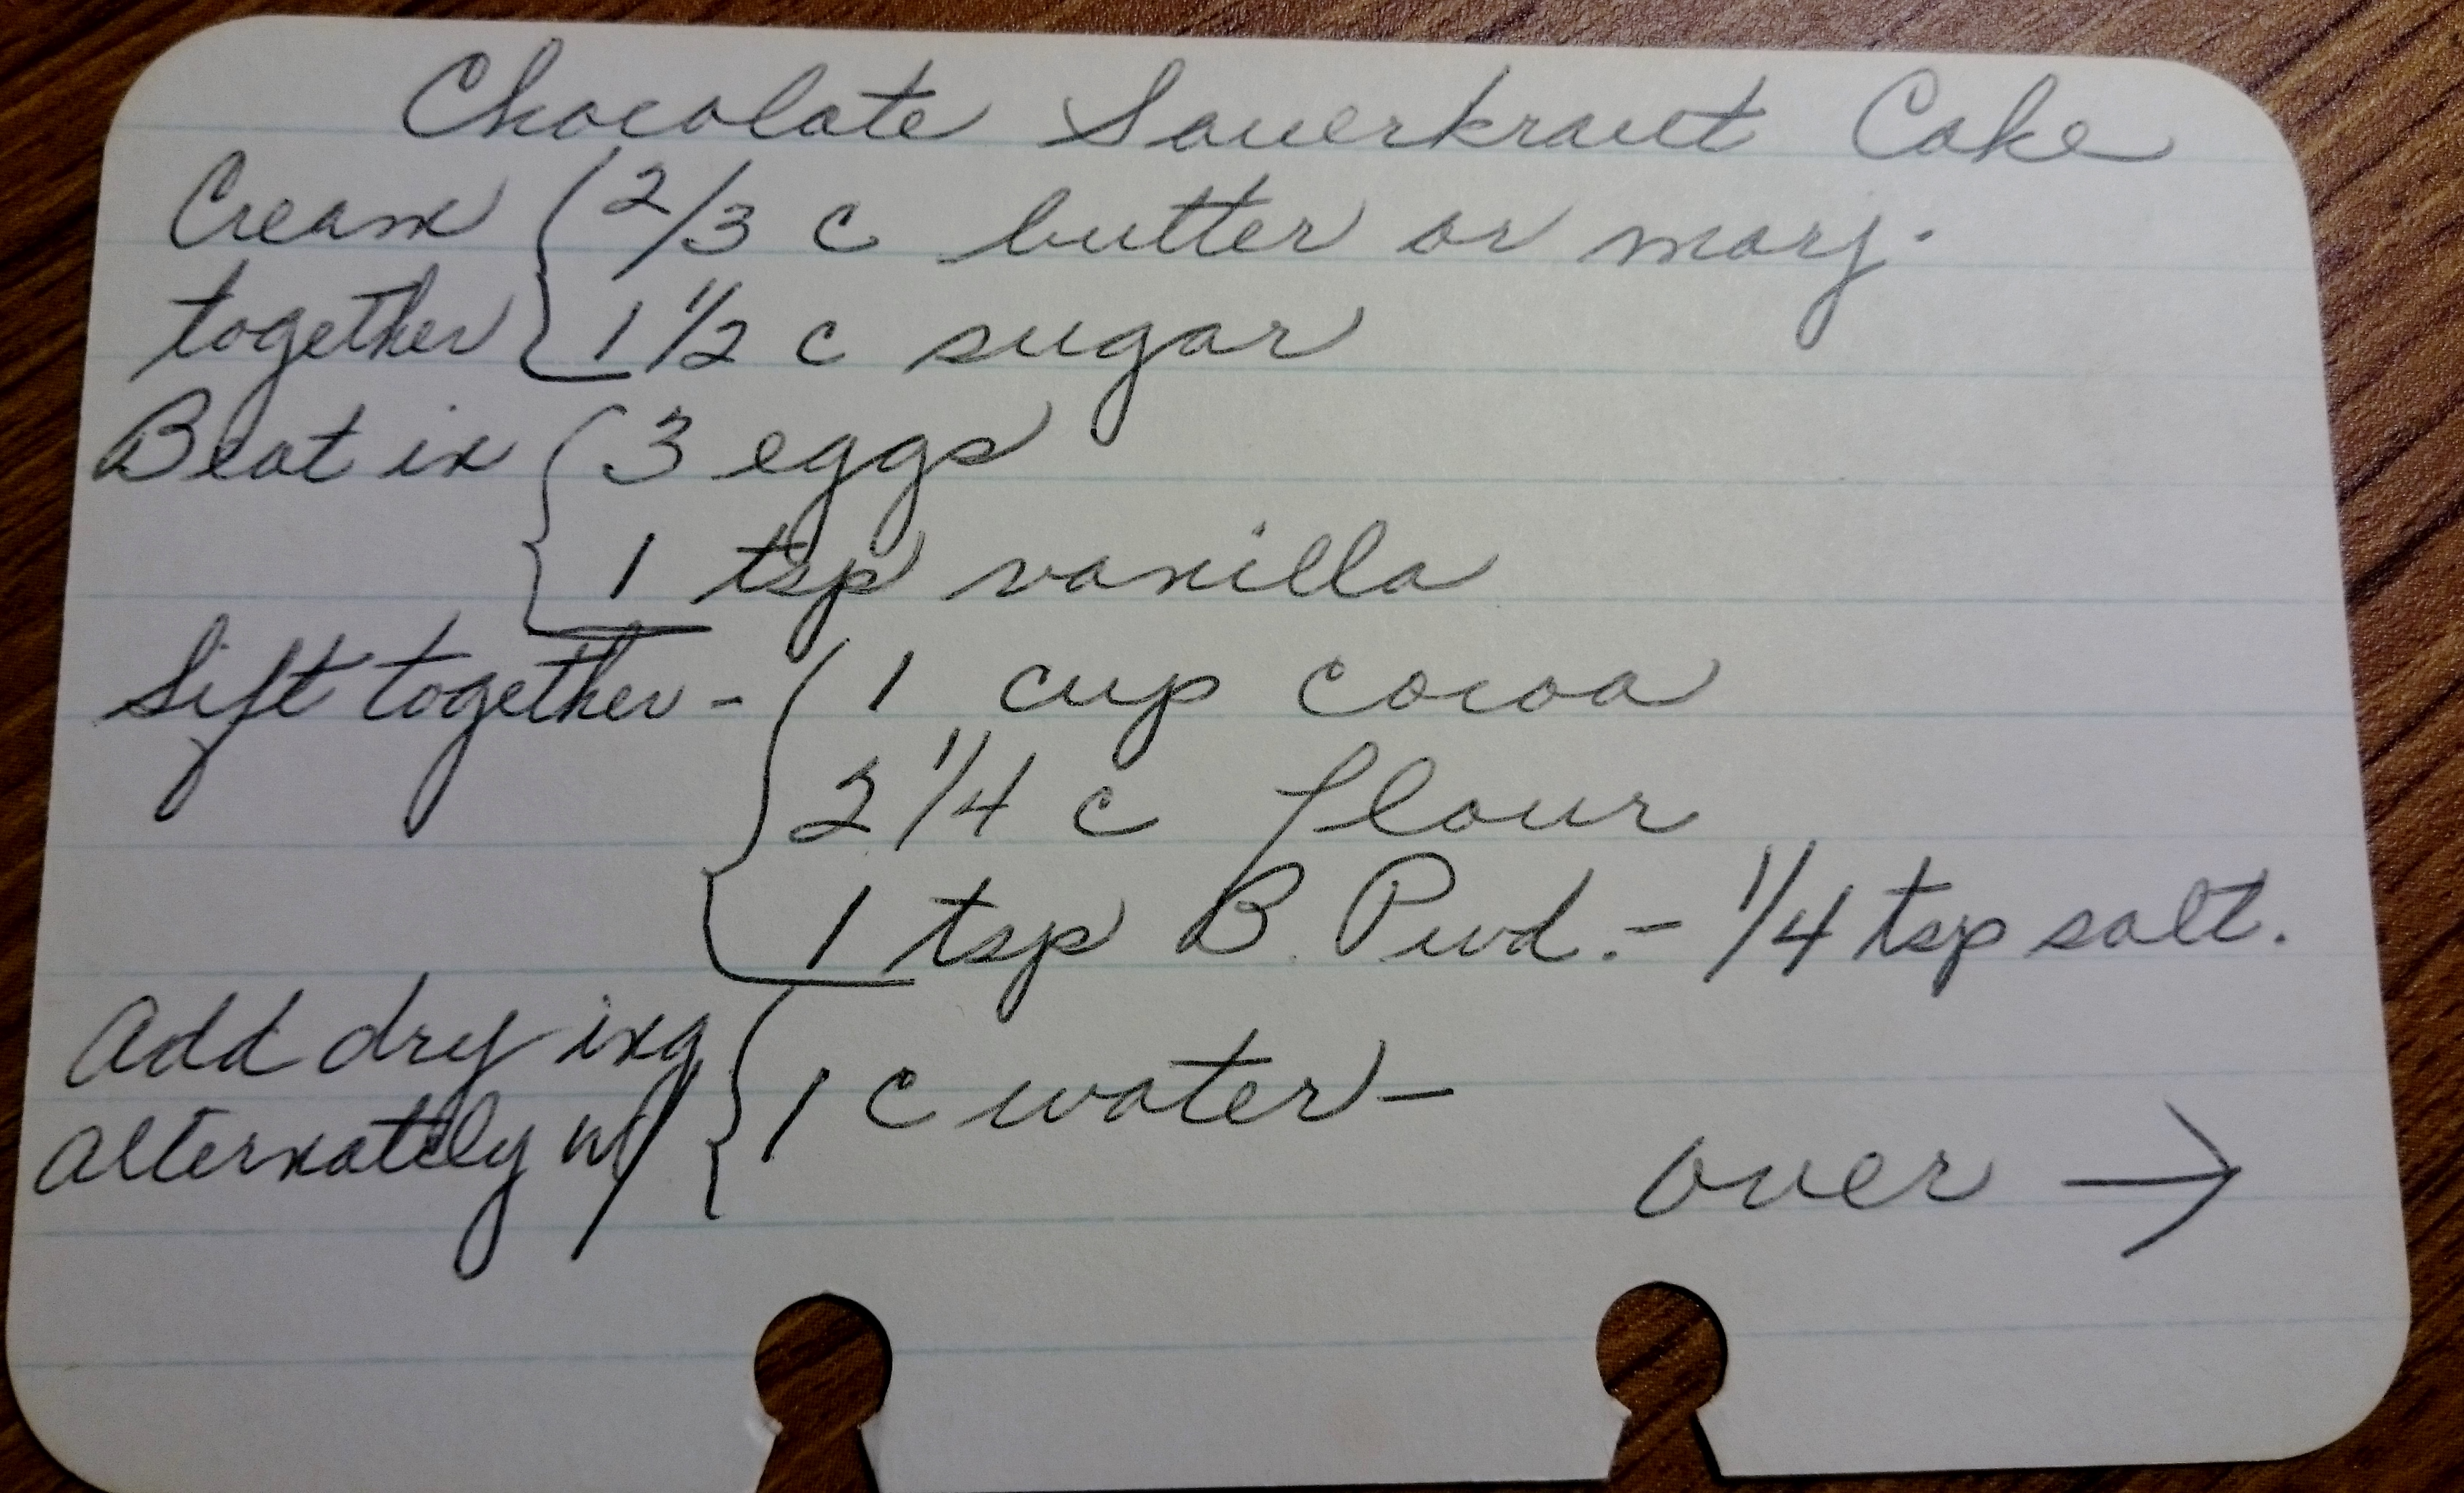 Chocolate Sauerkraut Cake
Cream 2/3 c butter or marg.
together 1 1/2 c sugar
Beat in 3 eggs
1 tsp vanilla
Sift together - 1 cup cocoa
2 1/4 c flour
1 tsp B. Pwd. - 1/4 tsp salt.
Add dry ing
alternately w/ 1 c water -
over →